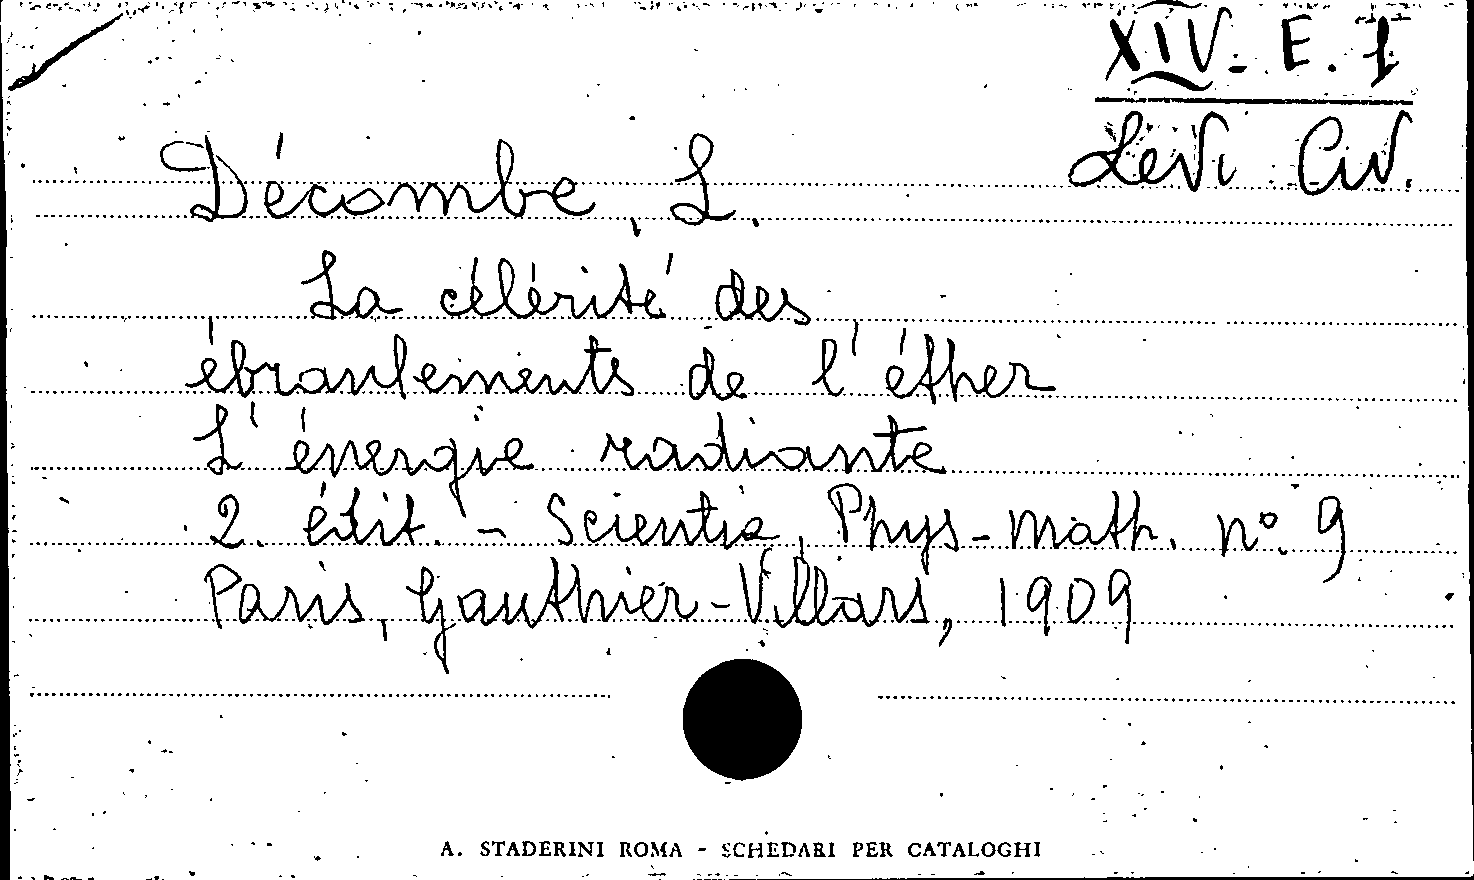 XIV. E. 1
Levi Civ.
Décombe, L.
La célérité des
ébranlements de l'éther
L'énergie radiante
2. édit. - Scientia, Phys-Math. n° 9
Paris, Gauthier-Villars, 1909
A. STADERINI ROMA - SCHEDARI PER CATALOGHI